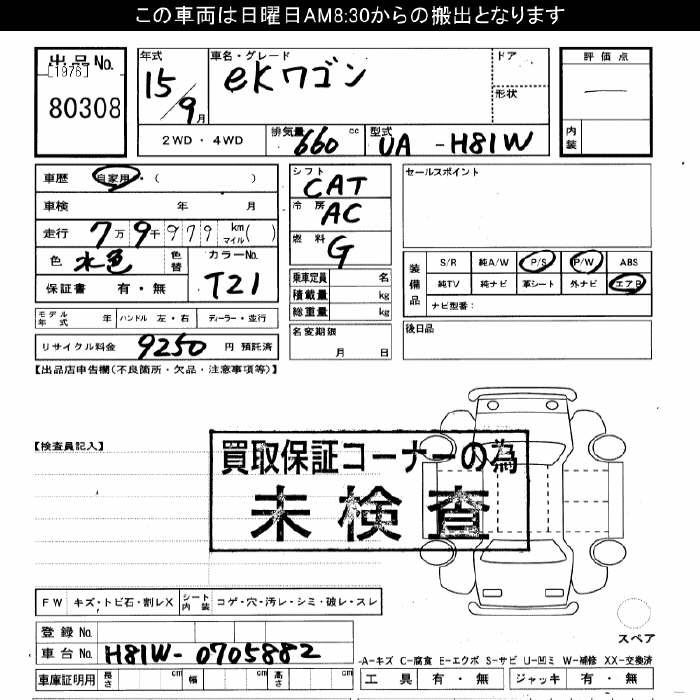 この車両は日曜日AM8:30からの搬出となります
出品No.
[1976]
80308
年式
15/9月
車名・グレード
eKワゴン
ドア
形状
評価点
内装
2WD・4WD
排気量 660 cc
型式 UA-H81W
車歴 自家用・( )
車検 年 月
走行 7万9千979 km マイル( )
色 水色 色替
カラーNo. T21
保証書 有・無
シフト CAT
冷房 AC
燃料 G
乗車定員 名
積載量 kg
総重量 kg
名変期限 月 日
セールスポイント
装備品
S/R 純A/W P/S P/W ABS
純TV 純ナビ 革シート 外ナビ エアB
ナビ型番:
後日品
モデル年式 年 ハンドル 左・右 ディーラー・並行
リサイクル料金 9250 円 預託済
【出品店申告欄(不良箇所・欠品・注意事項等)】
【検査員記入】
買取保証コーナーの為
未検査
FW キズ・トビ石・割レX シート内装 コゲ・穴・汚レ・シミ・破レ・スレ
登録No.
車台No. H81W-0705882
車庫証明用 長さ cm 幅 cm 高さ cm
スペア
-A-キズ C-腐食 E-エクボ S-サビ U-凹ミ W-補修 XX-交換済
工具 有・無 ジャッキ 有・無